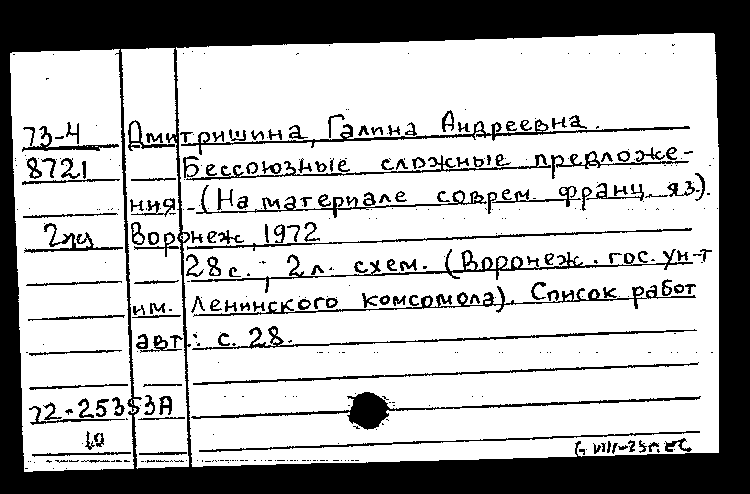 73-4 Дмитришина, Галина Андреевна.
8721 Бессоюзные сложные предложе-
ния. (На материале соврем. франц. яз.).
Воронеж, 1972
28 с.; 2 л. схем. (Воронеж. гос. ун-т
им. Ленинского комсомола). Список работ
авт.: с. 28.
72-25353А